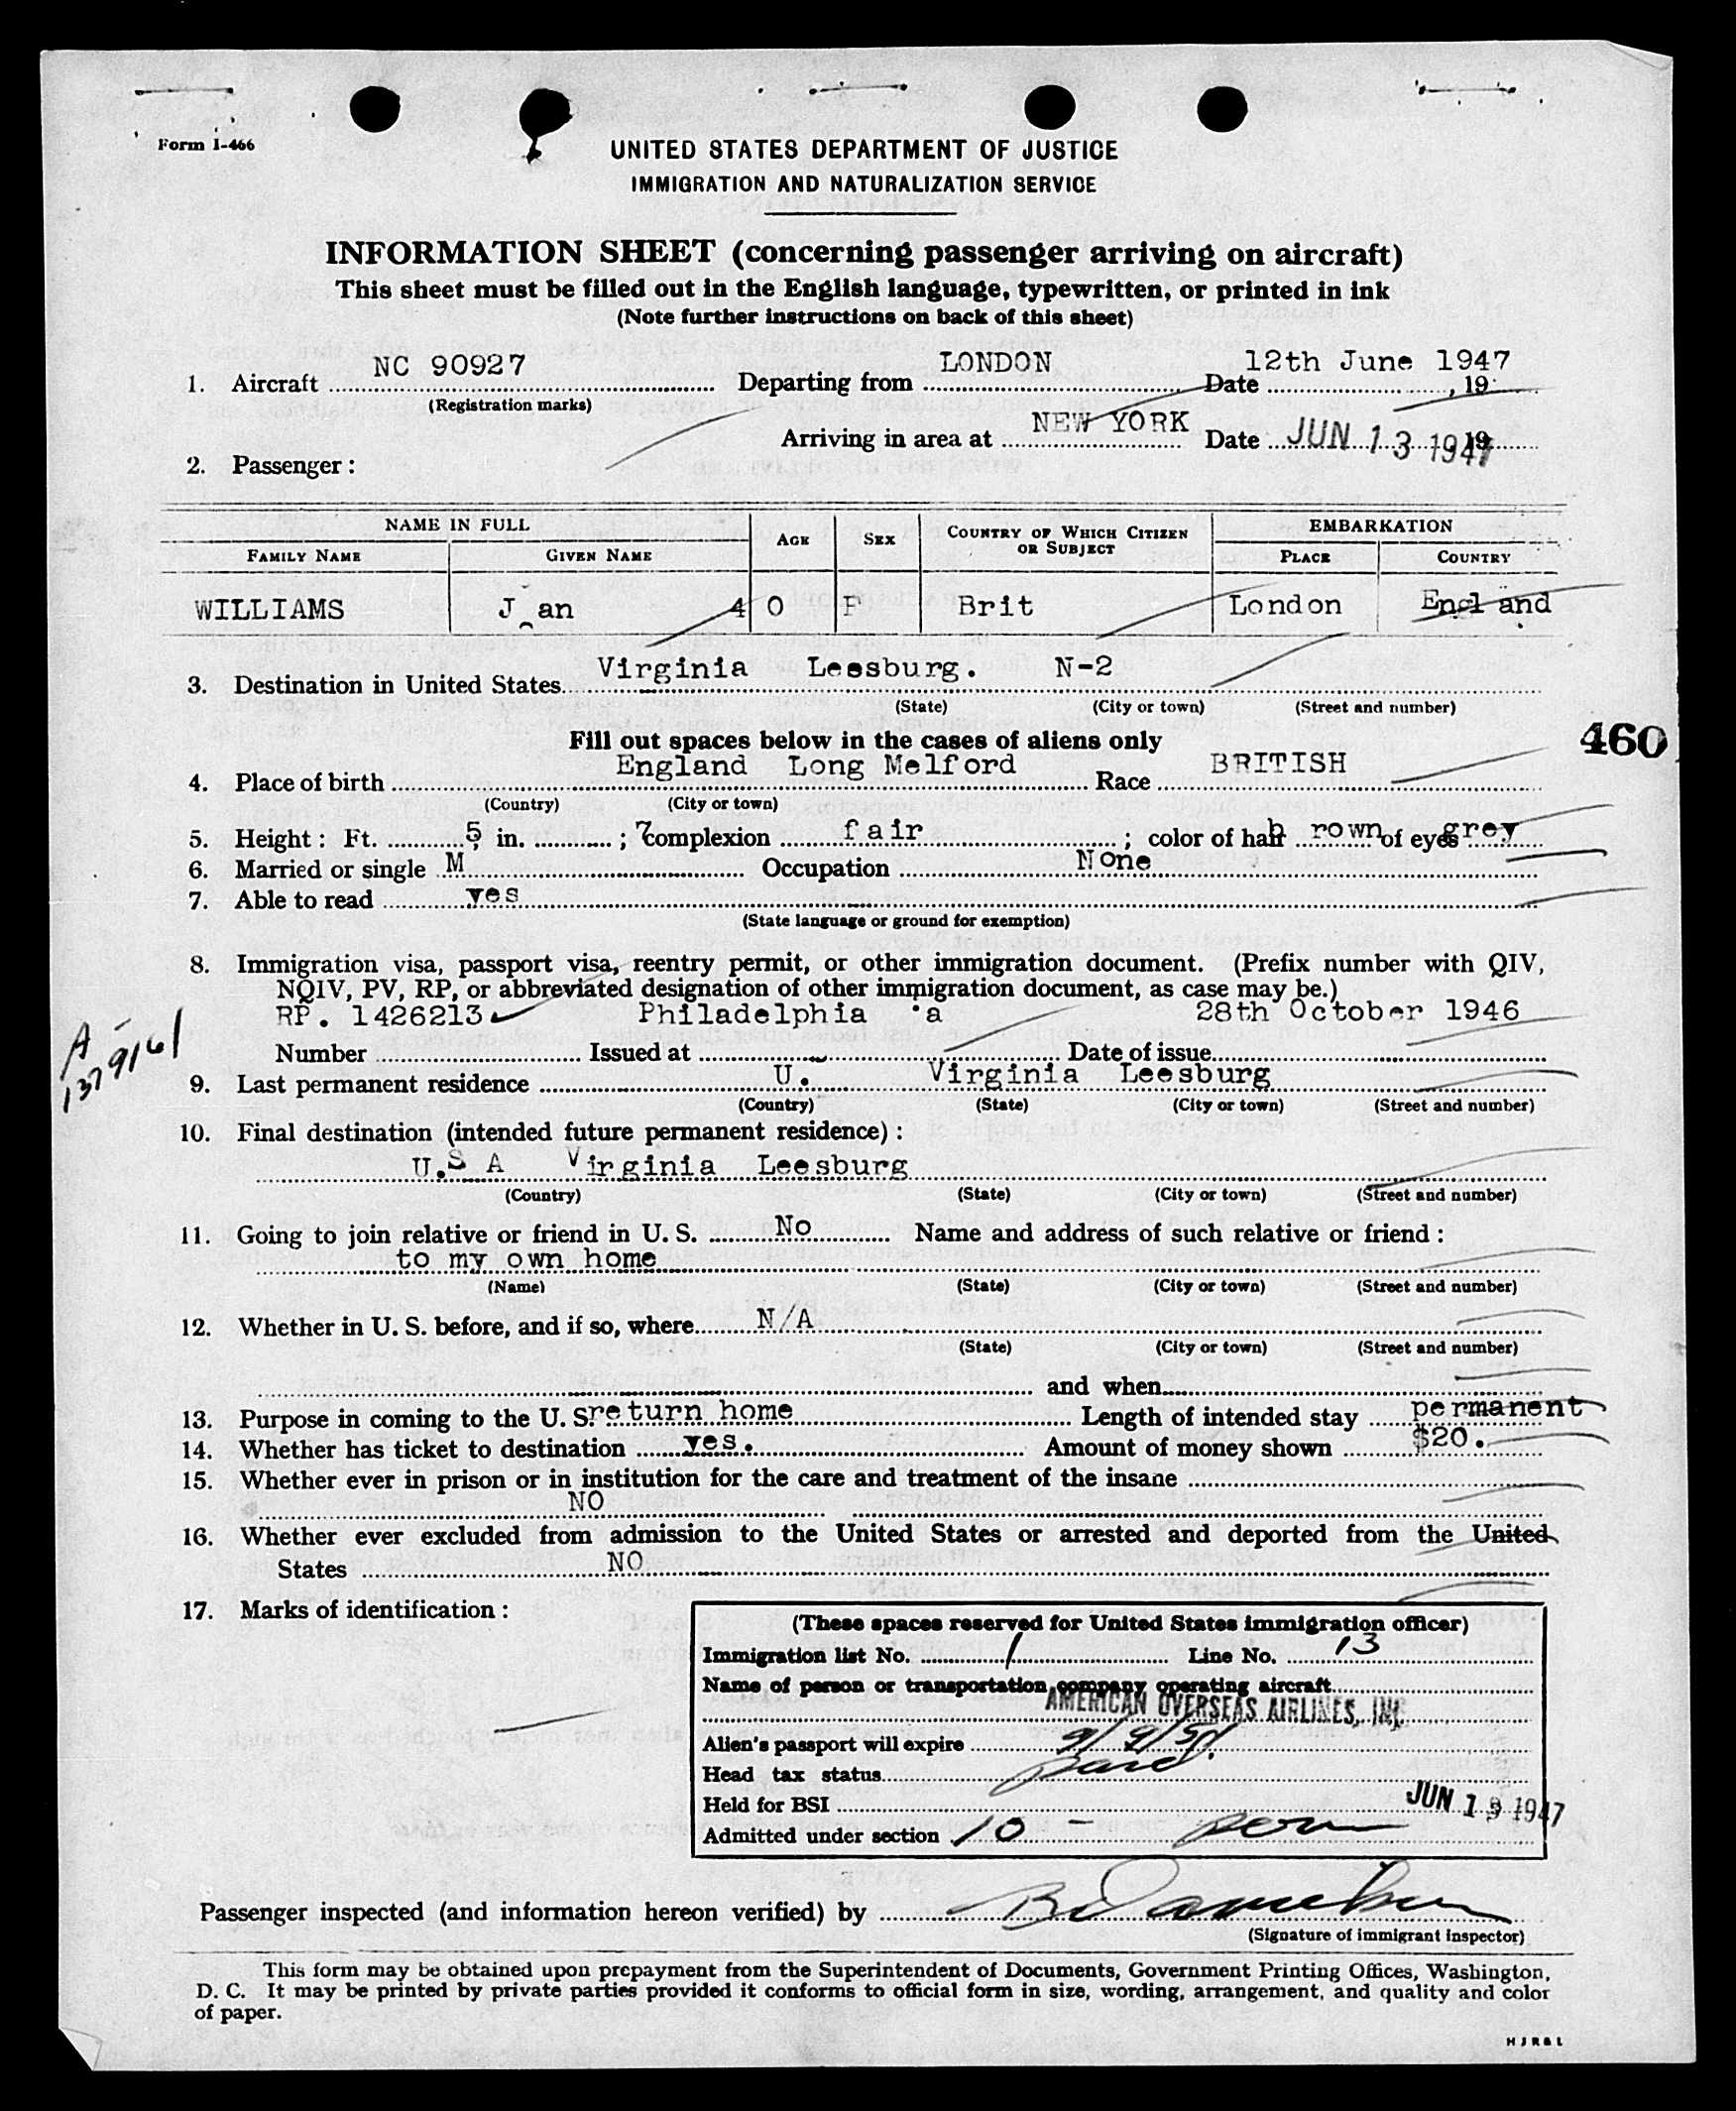 Form I-466
UNITED STATES DEPARTMENT OF JUSTICE
IMMIGRATION AND NATURALIZATION SERVICE
INFORMATION SHEET (concerning passenger arriving on aircraft)
This sheet must be filled out in the English language, typewritten, or printed in ink
(Note further instructions on back of this sheet)
1. Aircraft NC 90927 Departing from LONDON Date 12th June 1947, 19
(Registration marks)
Arriving in area at NEW YORK Date JUN 13 1947 19
2. Passenger:
NAME IN FULL AGE SEX COUNTRY OF WHICH CITIZEN OR SUBJECT EMBARKATION
FAMILY NAME GIVEN NAME PLACE COUNTRY
WILLIAMS J an 40 F Brit London Engl and
3. Destination in United States Virginia Leesburg. N-2
(State) (City or town) (Street and number)
460
Fill out spaces below in the cases of aliens only
4. Place of birth England Long Melford Race BRITISH
(Country) (City or town)
5. Height: Ft. 5 in. 7; complexion fair; color of hair brown of eyes grey
6. Married or single M Occupation None
7. Able to read yes
(State language or ground for exemption)
8. Immigration visa, passport visa, reentry permit, or other immigration document. (Prefix number with QIV,
NQIV, PV, RP, or abbreviated designation of other immigration document, as case may be.)
RP. 1426213 Philadelphia a 28th October 1946
Number Issued at Date of issue
9. Last permanent residence U. Virginia Leesburg
(Country) (State) (City or town) (Street and number)
10. Final destination (intended future permanent residence):
U.S A Virginia Leesburg
(Country) (State) (City or town) (Street and number)
11. Going to join relative or friend in U. S. No Name and address of such relative or friend:
to my own home
(Name) (State) (City or town) (Street and number)
12. Whether in U. S. before, and if so, where N/A
(State) (City or town) (Street and number)
and when
13. Purpose in coming to the U. S. return home Length of intended stay permanent
14. Whether has ticket to destination yes. Amount of money shown $20.
15. Whether ever in prison or in institution for the care and treatment of the insane
NO
16. Whether ever excluded from admission to the United States or arrested and deported from the United
States NO
17. Marks of identification:
(These spaces reserved for United States immigration officer)
Immigration list No. 1 Line No. 13
Name of person or transportation company operating aircraft
AMERICAN OVERSEAS AIRLINES, INC.
Alien's passport will expire 9/9/51.
Head tax status
Held for BSI JUN 13 1947
Admitted under section 10 - perm
Passenger inspected (and information hereon verified) by
(Signature of immigrant inspector)
This form may be obtained upon prepayment from the Superintendent of Documents, Government Printing Offices, Washington,
D. C. It may be printed by private parties provided it conforms to official form in size, wording, arrangement, and quality and color
of paper.
HJR&L